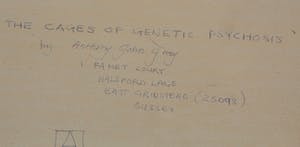 THE CAGES OF GENETIC PSYCHOSIS
by Anthony John Gray
1 FAMET COURT
HALSFORD LAGE
EAST GRINSTEAD (25098)
SUSSEX